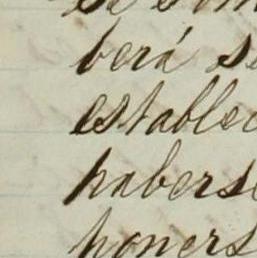 berá se
establec
haberse
poners